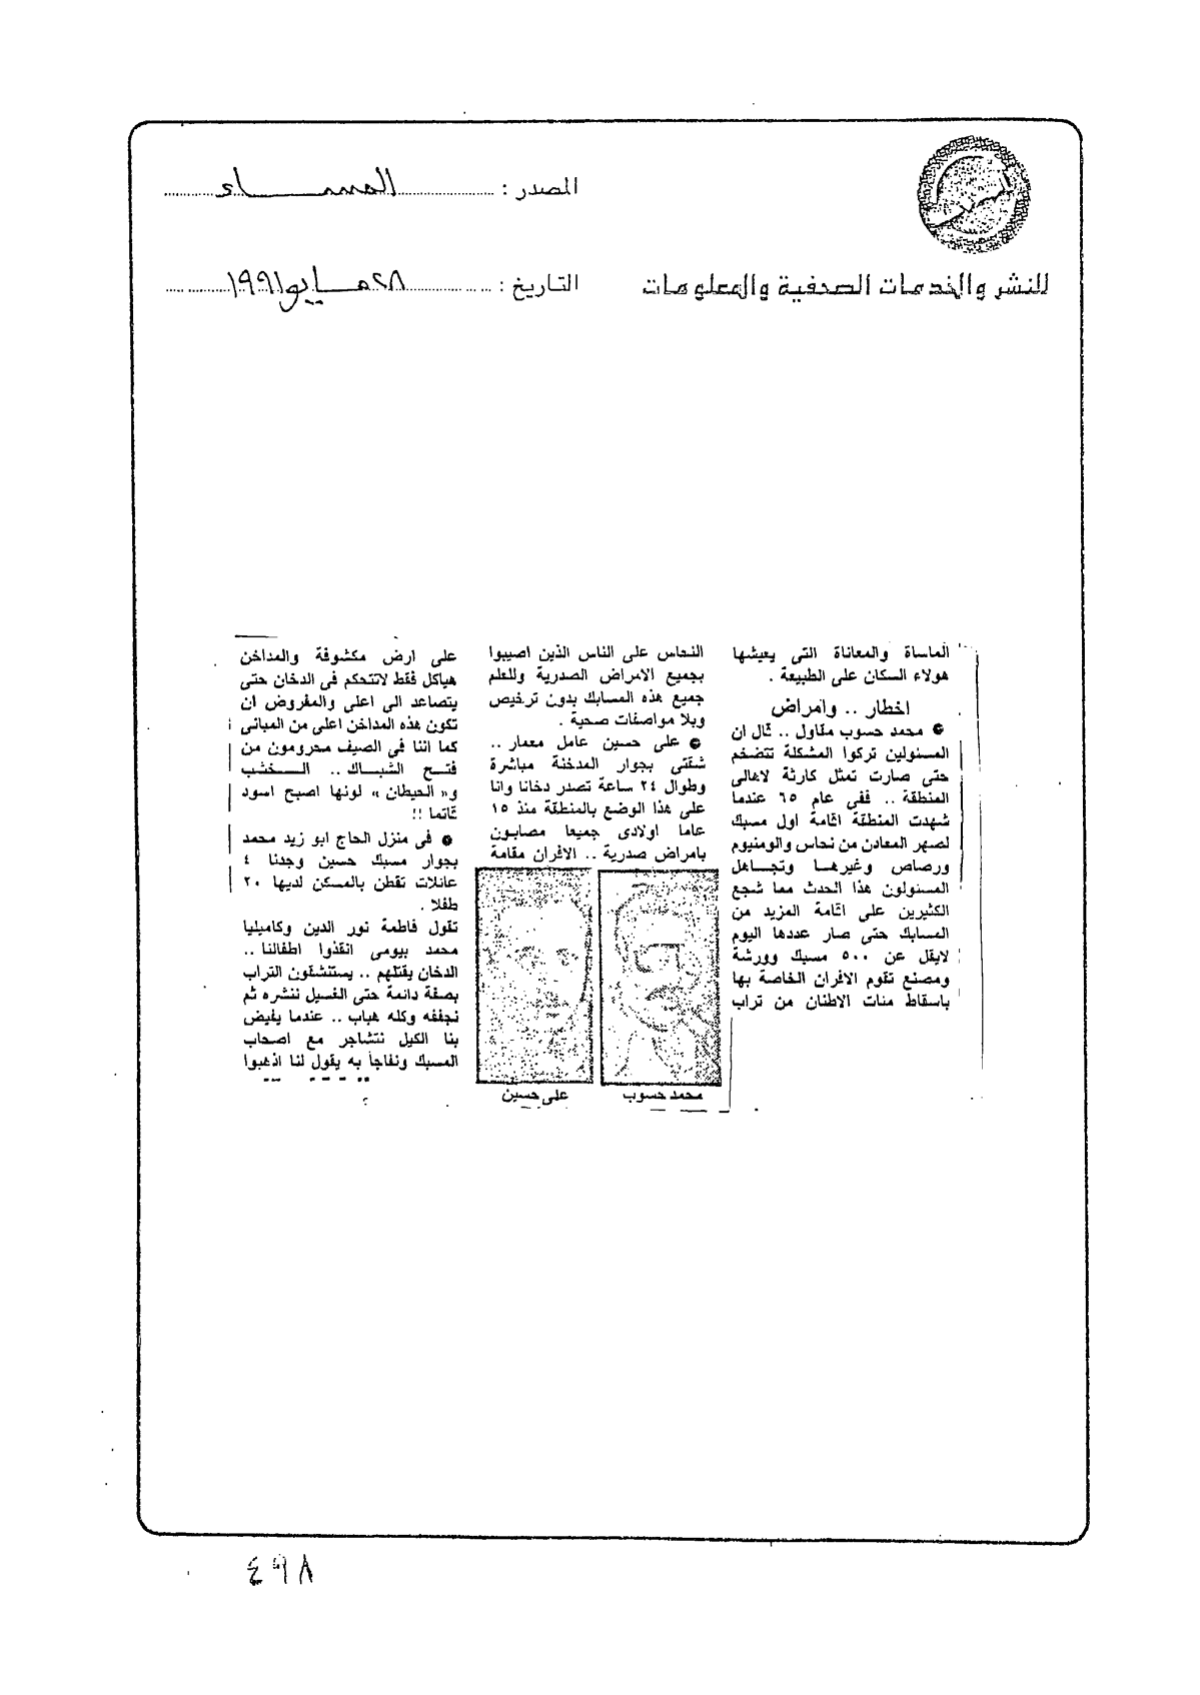 المصدر : المساء
للنشر والخدمات الصحفية والمعلومات
التاريخ : ٢٨ مايو ١٩٩١
الماساة والمعاناة التى يعيشها
هولاء السكان على الطبيعة .
اخطار .. وامراض
● محمد حسوب مقاول .. قال ان
المسئولين تركوا المشكلة تتضخم
حتى صارت تمثل كارثة لاهالى
المنطقة .. ففى عام ٦٥ عندما
شهدت المنطقة اقامة اول مسبك
لصهر المعادن من نحاس والومنيوم
ورصاص وغيرها وتجاهل
المسئولون هذا الحدث مما شجع
الكثيرين على اقامة المزيد من
المسابك حتى صار عددها اليوم
لايقل عن ٥٠٠ مسبك وورشة
ومصنع تقوم الافران الخاصة بها
باسقاط مئات الاطنان من تراب
النحاس على الناس الذين اصيبوا
بجميع الامراض الصدرية وللعلم
جميع هذه المسابك بدون ترخيص
وبلا مواصفات صحية .
● على حسين عامل معمار ..
شقتى بجوار المدخنة مباشرة
وطوال ٢٤ ساعة تصدر دخانا وانا
على هذا الوضع بالمنطقة منذ ١٥
عاما اولادى جميعا مصابون
بامراض صدرية .. الافران مقامة
محمد حسوب
على حسين
على ارض مكشوفة والمداخن
هياكل فقط لاتتحكم فى الدخان حتى
يتصاعد الى اعلى والمفروض ان
تكون هذه المداخن اعلى من المبانى
كما اننا فى الصيف محرومون من
فتح الشباك .. الخشب
و« الحيطان » لونها اصبح اسود
قاتما !!
● فى منزل الحاج ابو زيد محمد
بجوار مسبك حسين وجدنا ٤
عائلات تقطن بالمسكن لديها ٢٠
طفلا .
تقول فاطمة نور الدين وكاميليا
محمد بيومى انقذوا اطفالنا ..
الدخان يقتلهم .. يستنشقون التراب
بصفة دائمة حتى الغسيل ننشره ثم
نجففه وكله هباب .. عندما يفيض
بنا الكيل نتشاجر مع اصحاب
المسبك ونفاجأ به يقول لنا اذهبوا
٤٩٨